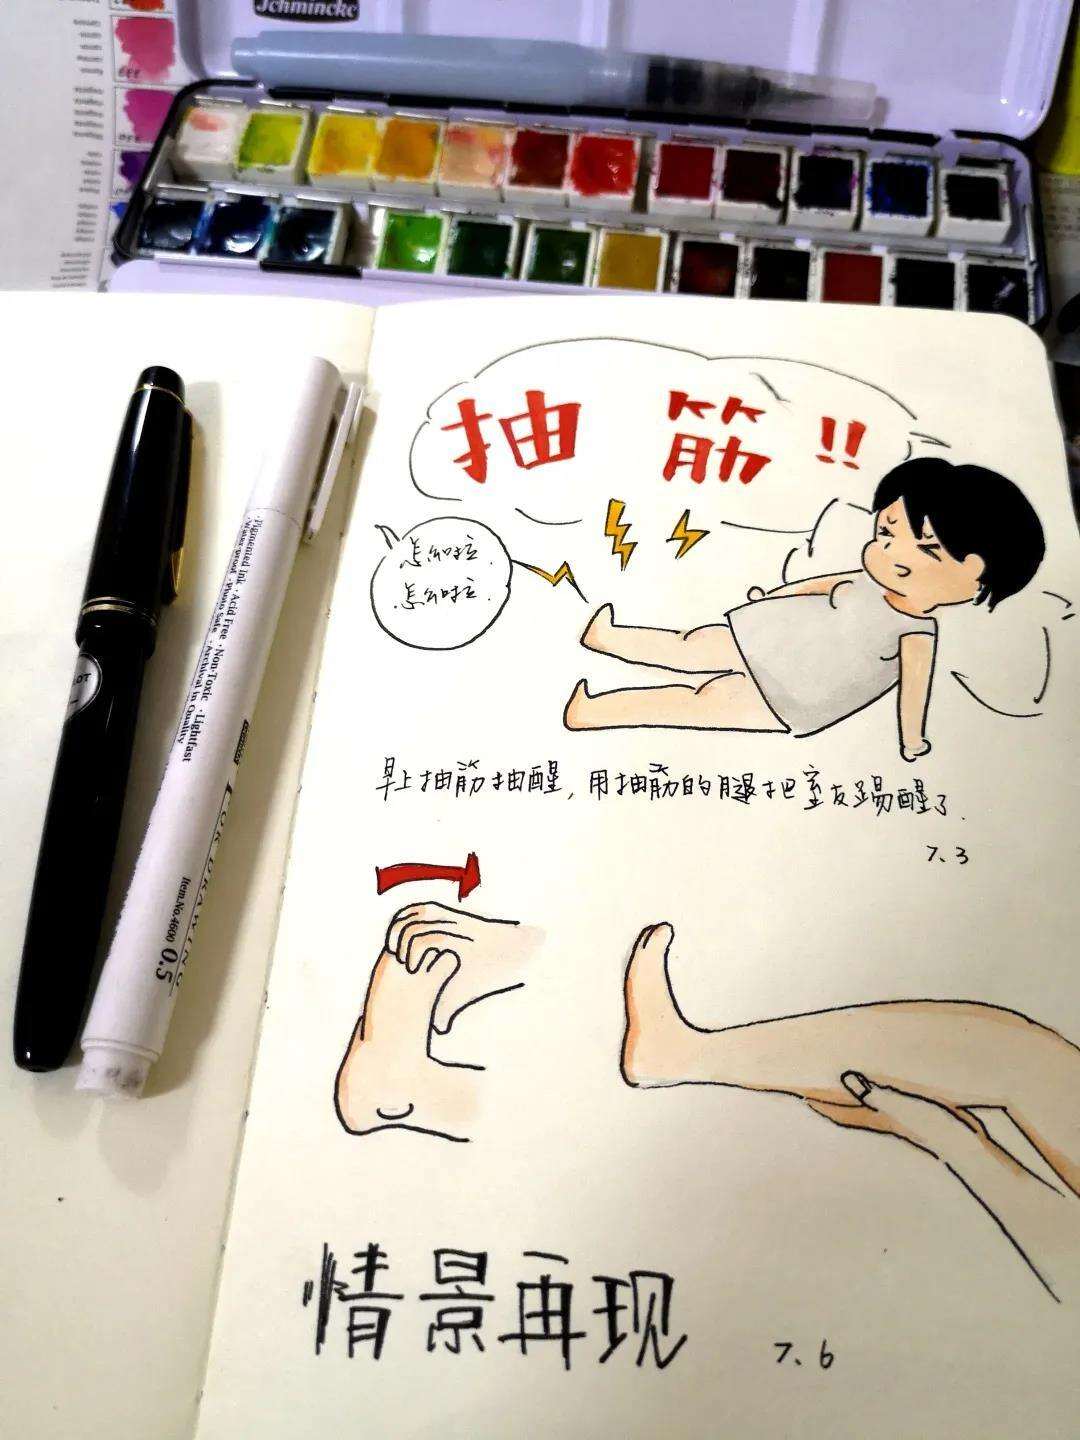 Schmincke
抽 筋 !!
怎么啦.
怎么啦.
早上抽筋抽醒, 用抽筋的腿把室友踢醒了.
7.3
情景再现
7.6
·Pigmented Ink·Acid Free·Non-Toxic·Lightfast
·Waterproof·Photo safe·Archival in Quality
FOR DRAWING
Item.No.4600 0.5